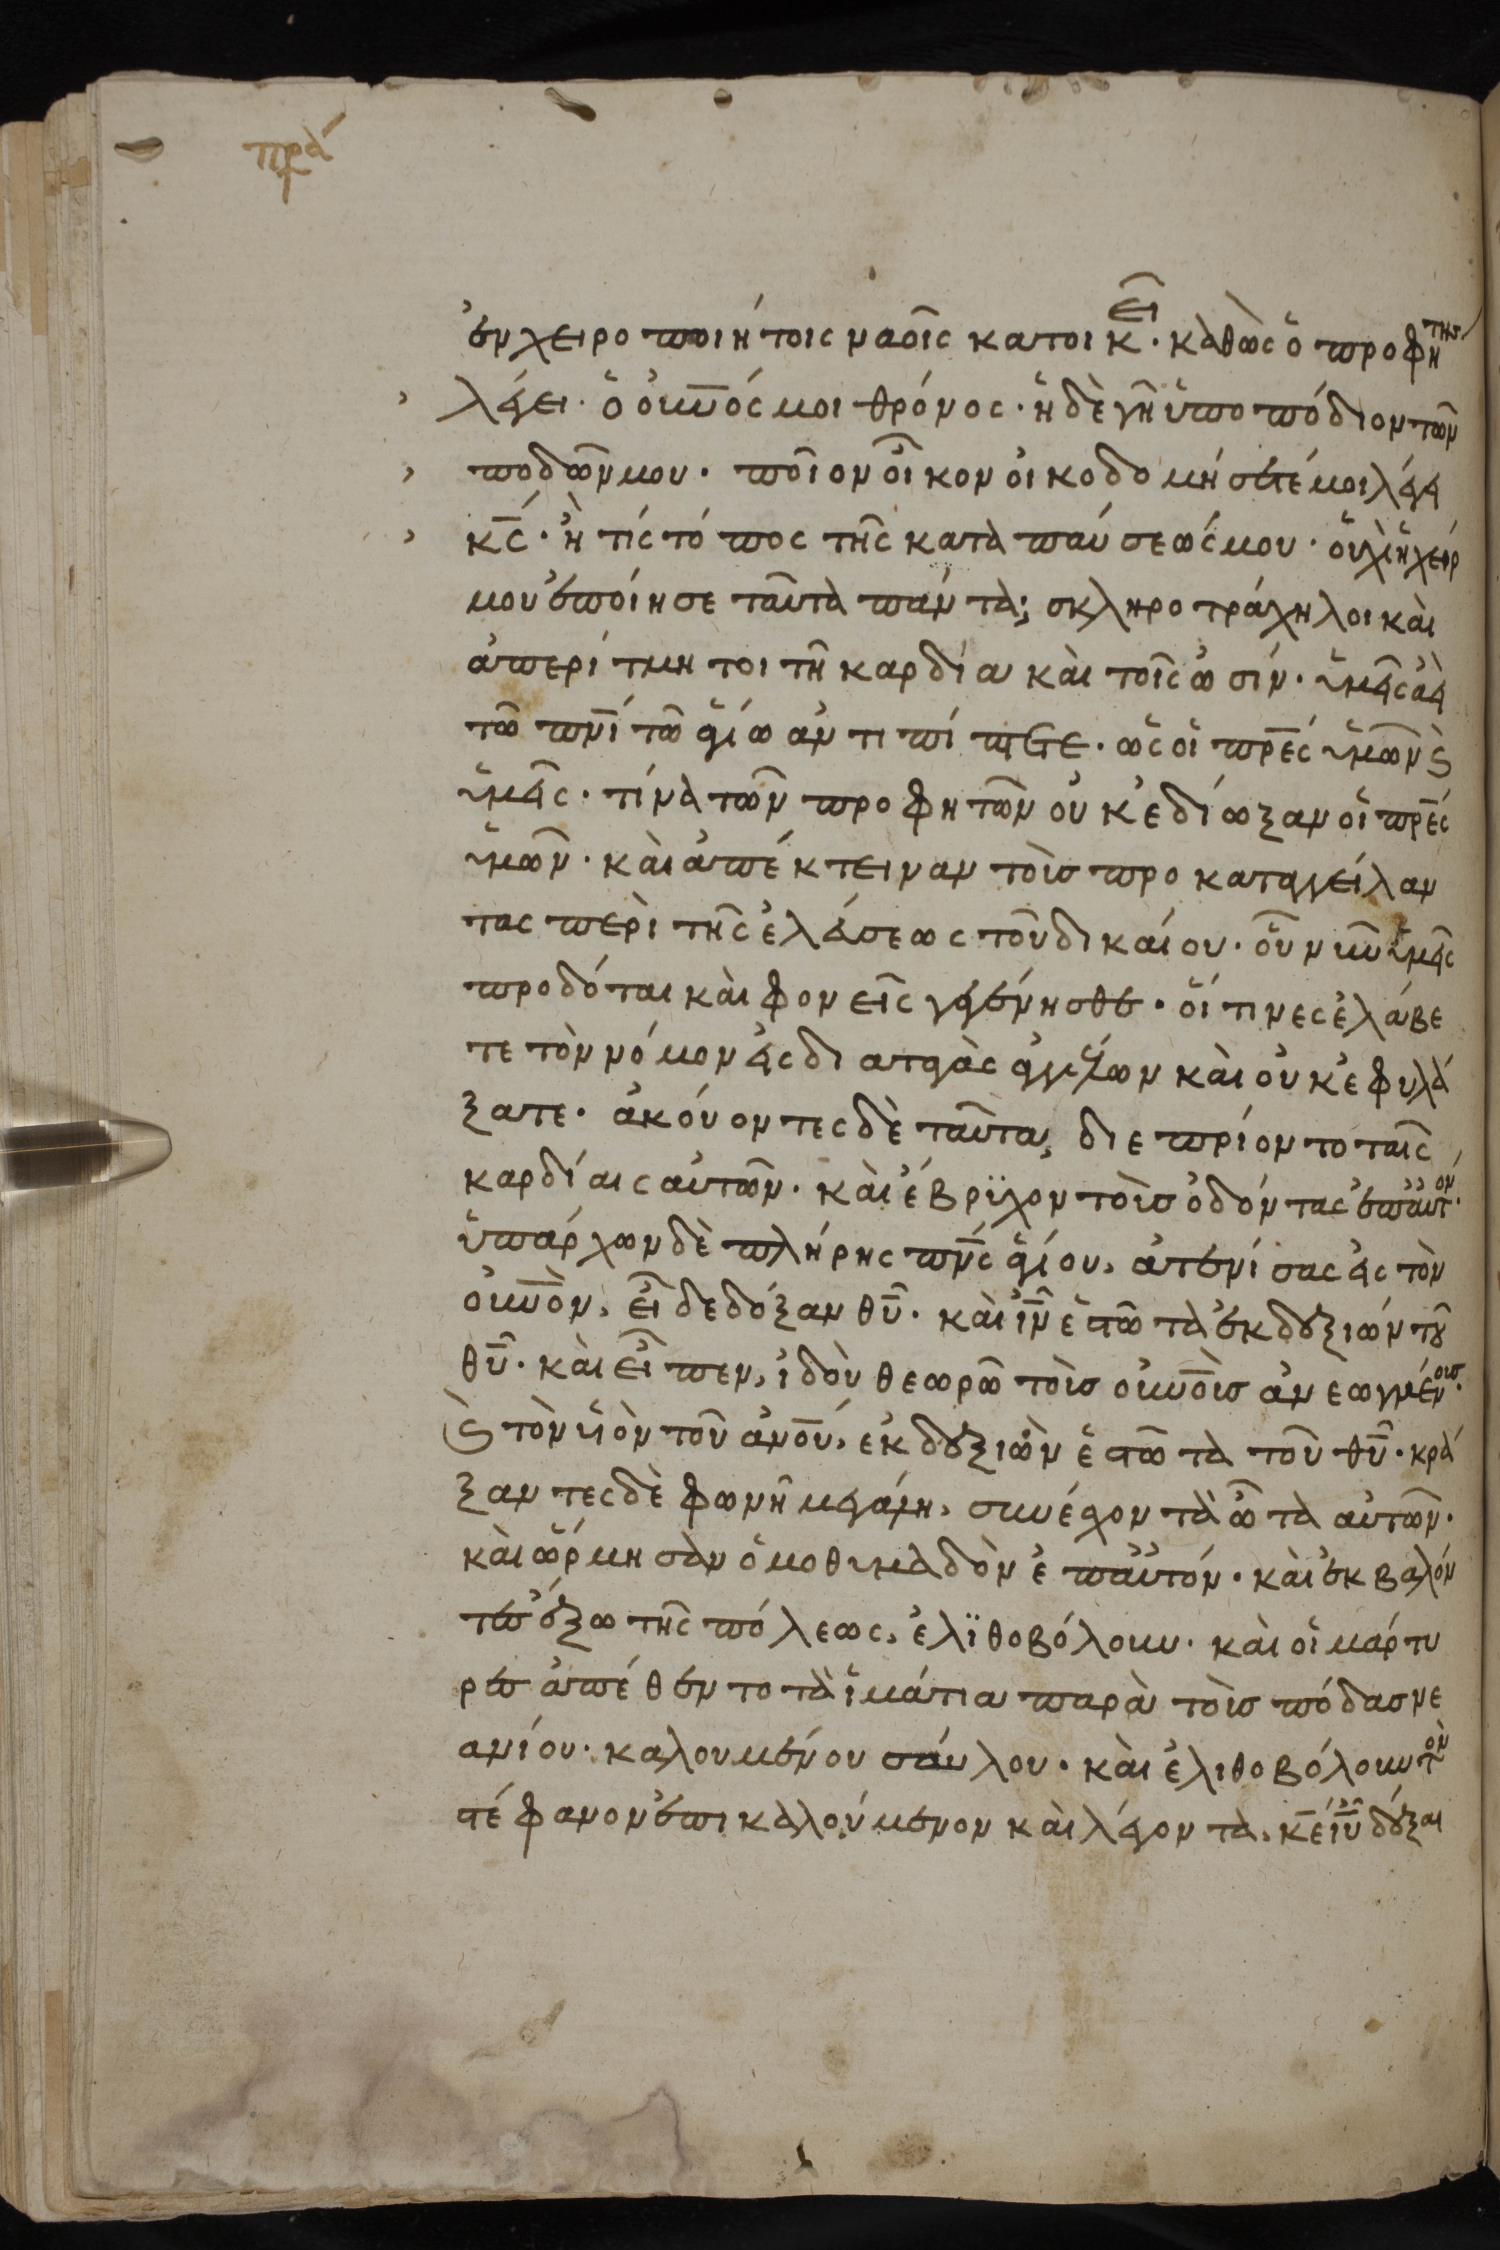 πρα
ἐν χειροποιήτοις ναοῖς κατοικεῖ· καθὼς ὁ προφήτης
λέγει· ὁ οὐνός μοι θρόνος· ἡ δὲ γῆ ὑποπόδιον τῶν
ποδῶν μου· ποῖον οἶκον οἰκοδομήσετέ μοι λέγει
κς· ἢ τίς τόπος τῆς καταπαύσεώς μου· οὐχὶ ἡ χείρ
μου ἐποίησε ταῦτα πάντα; σκληροτράχηλοι καὶ
ἀπερίτμητοι τῇ καρδία καὶ τοῖς ὠσίν· ὑμεῖς ἀεὶ
τῶ πνι τῶ ἁγίω ἀντιπίπτετε· ὡς οἱ πρες ὑμῶν καὶ
ὑμεῖς· τίνα τῶν προφητῶν οὐκ ἐδίωξαν οἱ πρες
ὑμῶν· καὶ ἀπέκτειναν τοὺς προκαταγγείλαν
τας περὶ τῆς ἐλεύσεως τοῦ δικαίου· οὗ νῦν ὑμεῖς
προδόται καὶ φονεῖς γεγένησθε· οἵτινες ἐλάβε
τε τὸν νόμον εἰς διαταγὰς ἀγγέλων καὶ οὐκ ἐφυλά
ξατε· ἀκούοντες δὲ ταῦτα, διεπρίοντο ταῖς
καρδίαις αὐτῶν· καὶ ἔβρϊχον τοὺς ὀδόντας ἐπ' αὐτόν·
ὑπάρχων δὲ πλήρης πνς ἁγίου, ἀτενίσας εἰς τὸν
οὐνὸν, εἶδε δόξαν θυ· καὶ ἰν ἑστῶτα ἐκ δεξιῶν τοῦ
θυ· καὶ εἶπεν, ἰδοὺ θεωρῶ τοὺς οὐνοὺς ἀνεωγμένους·
καὶ τὸν υἱὸν τοῦ ἀνου, ἐκ δεξιῶν ἑστῶτα τοῦ θυ· κρά
ξαντες δὲ φωνῇ μεγάλη, συνέσχον τὰ ὦτα αὐτῶν·
καὶ ὥρμησαν ὁμοθυμαδὸν ἐπ' αὐτόν· καὶ ἐκβαλόν
τες ἔξω τῆς πόλεως, ἐλϊθοβόλουν· καὶ οἱ μάρτυ
ρες ἀπέθεντο τὰ ἱμάτια παρὰ τοὺς πόδας νε
ανίου· καλουμένου σαύλου· καὶ ἐλιθοβόλουν τὸν
στέφανον ἐπικαλούμενον καὶ λέγοντα, κε ιυ δέξαι